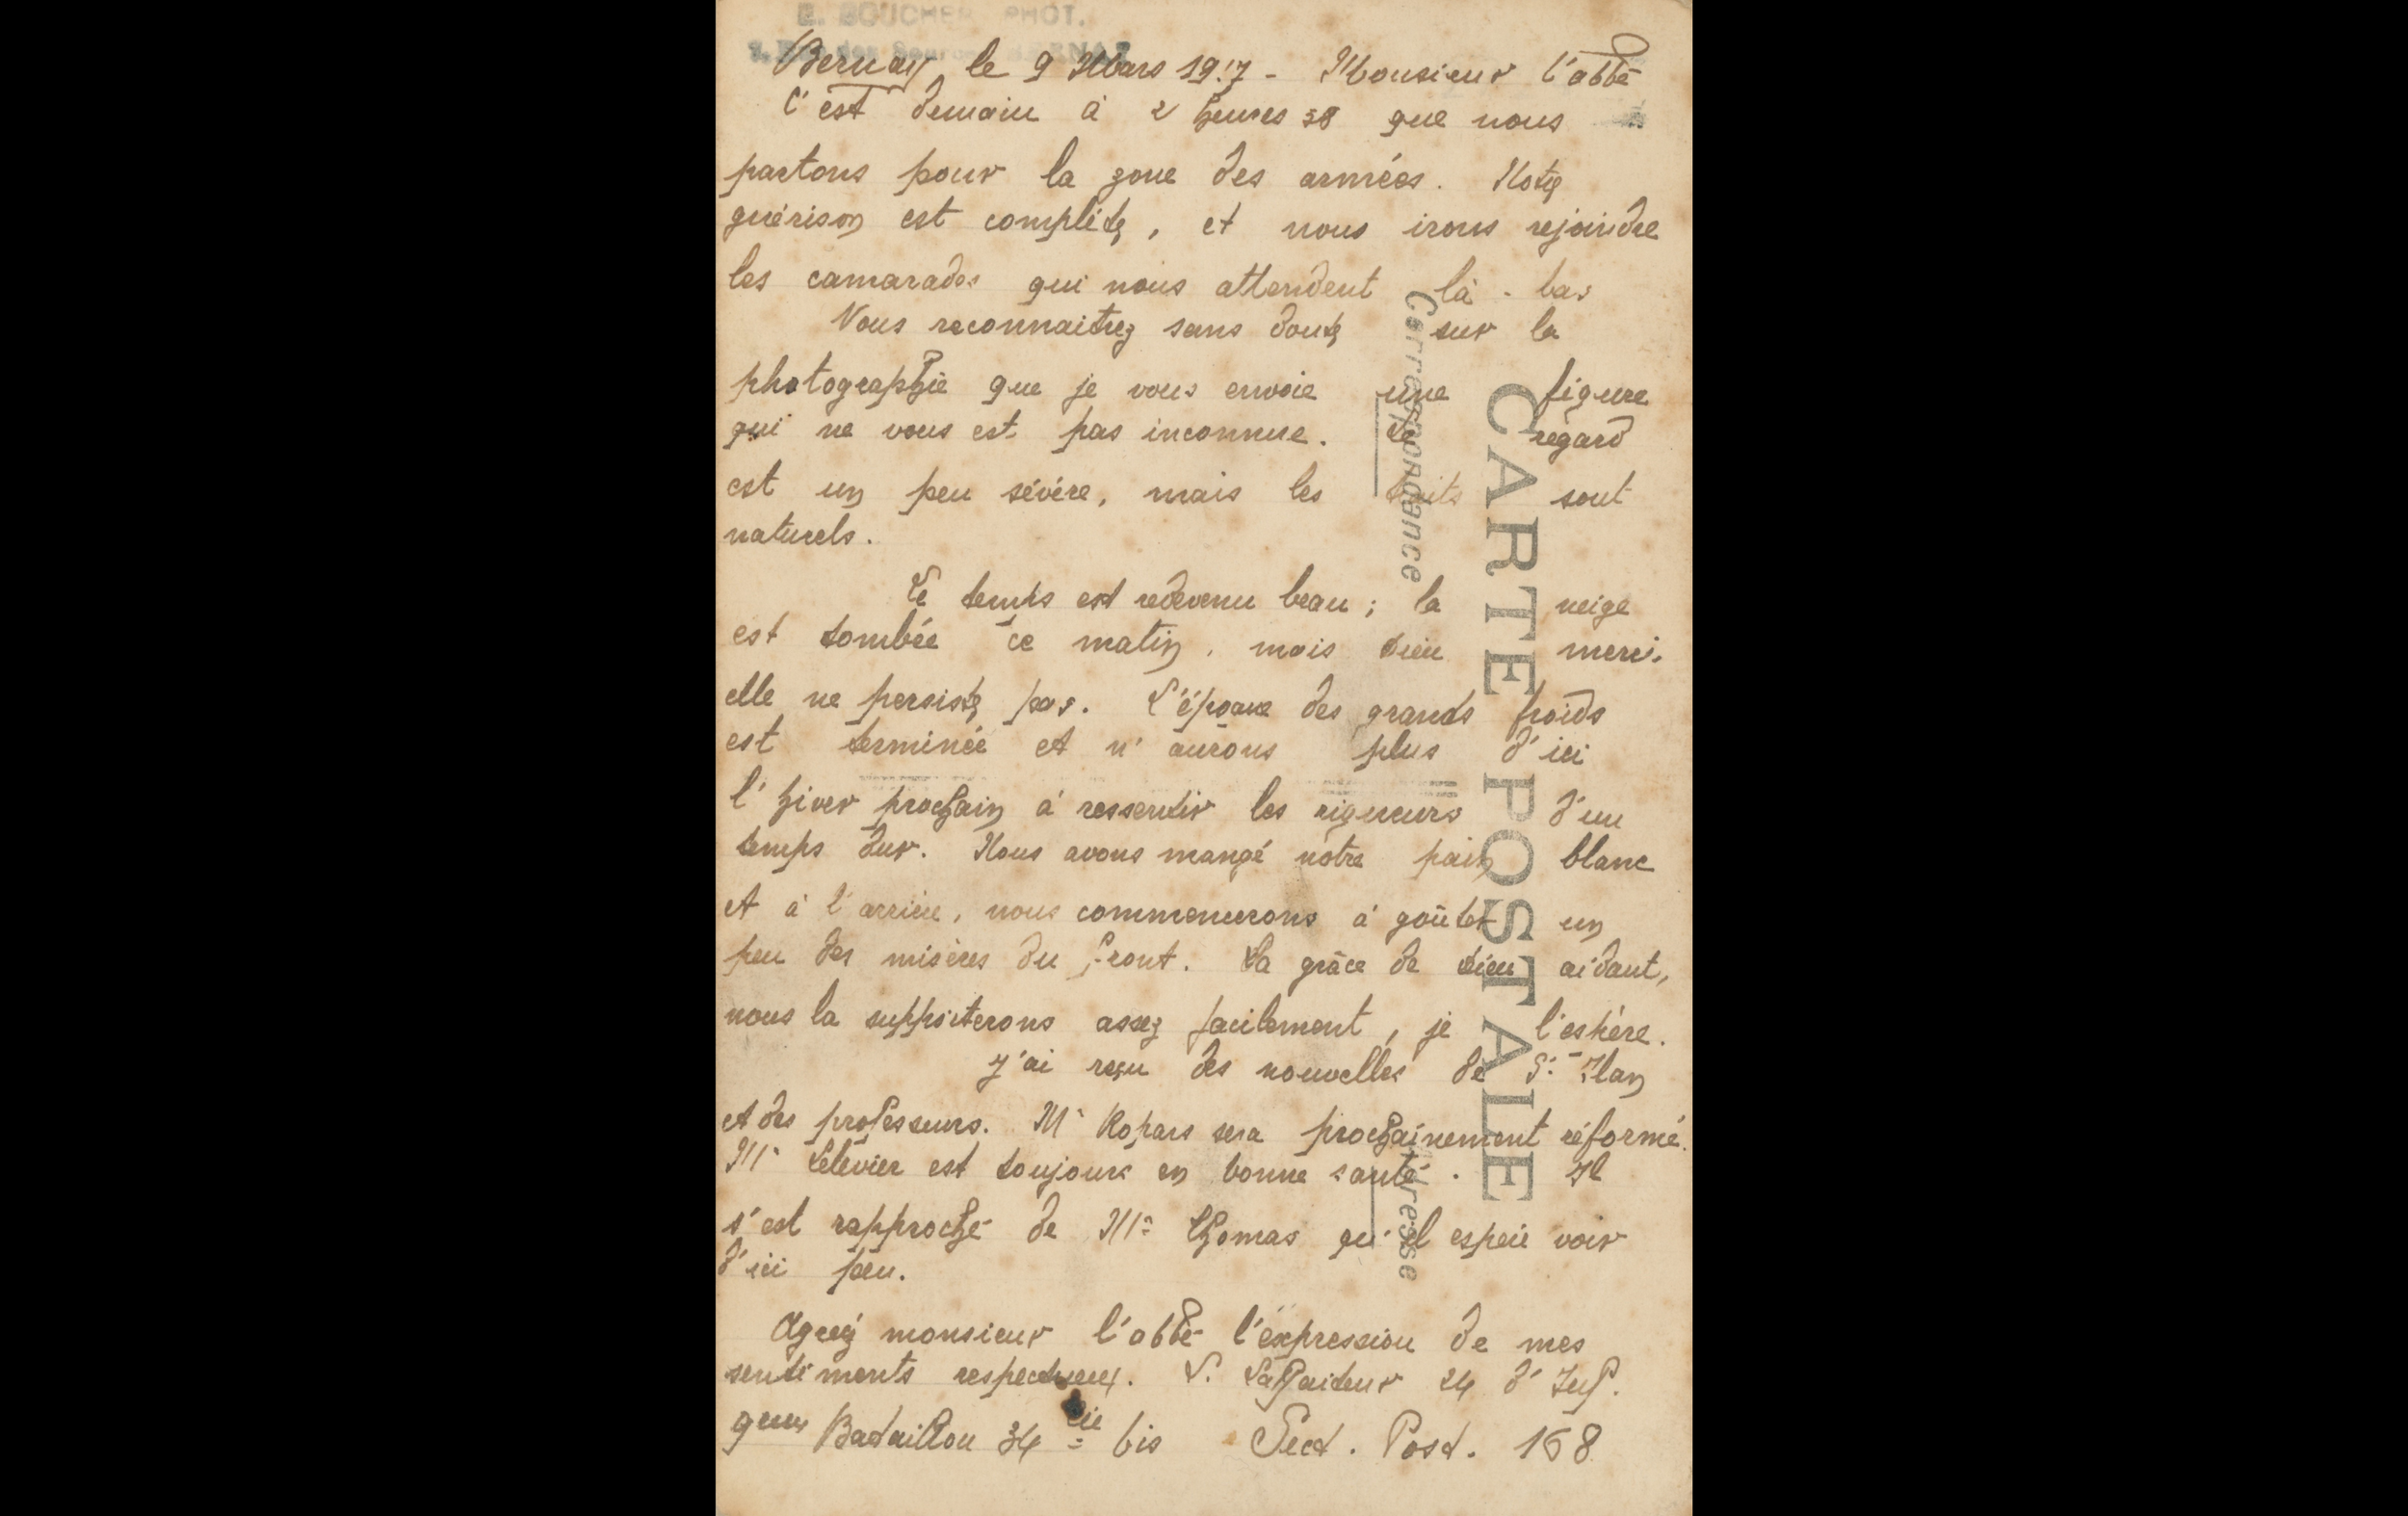 E. BOUCHER PHOT.
Bernay, le 9 Mars 1917 - Monsieur l'abbé
C'est demain à 2 heures 58 que nous
partons pour la zone des armées. Notre
guérison est complète, et nous irons rejoindre
les camarades qui nous attendent là-bas
Vous reconnaitrez sans doute sur la
photographie que je vous envoie une figure
qui ne vous est pas inconnue. Le regard
est un peu sévère, mais les traits sont
naturels.
Le temps est redevenu beau ; la neige
est tombée ce matin, mais Dieu merci,
elle ne persiste pas. L'époque des grands froids
est terminée et n'aurons plus d'ici
l'hiver prochain à ressentir les rigueurs d'un
temps dur. Nous avons mangé notre pain blanc
et à l'arrière, nous commencerons à goûter un
peu des misères du front. La grâce de Dieu aidant,
nous la supporterons assez facilement, je l'espère.
J'ai reçu des nouvelles de St Ilan
et des professeurs. Mr Ropars sera prochainement réformé.
Mr Lelévier est toujours en bonne santé. Il
s'est rapproché de Mr Thomas qu'il espère voir
d'ici peu.
Agréez monsieur l'abbé l'expression de mes
sentiments respectueux. 24 d'Inf.
9eme Bataillon 34 Cie bis Sect. Post. 168
CARTE POSTALE
Correspondance
Adresse